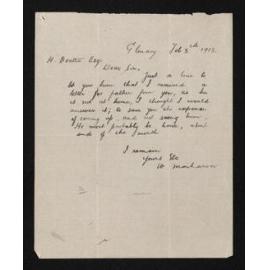 Feb 3th 1913.
H. Beattie Esq.
Dear Sir,
Just a line to
let you know that I received a
letter for father from you, as he
is not at home, I thought I would
answer it, to save you the expense
of coming up, and not seeing him.
He will probably be home, about
end of the month
I remain
Yours Etc
W